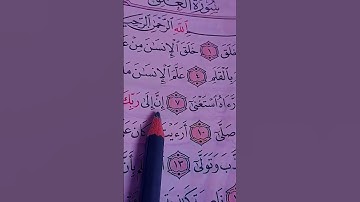 سُورَةُ الْعَلَقِ
اللَّهِ الرَّحْمَٰنِ الرَّحِ
لَقَ ١ خَلَقَ الْإِنسَٰنَ مِنْ عَ
بِالْقَلَمِ ٤ عَلَّمَ الْإِنسَٰنَ مَا
رَّءَاهُ اسْتَغْنَىٰ ٧ إِنَّ إِلَىٰ رَبِّكَ
صَلَّىٰ ١٠ أَرَءَيْتَ كَانَ عَ
ذَّبَ وَتَوَلَّىٰ ١٣ أَلَمْ